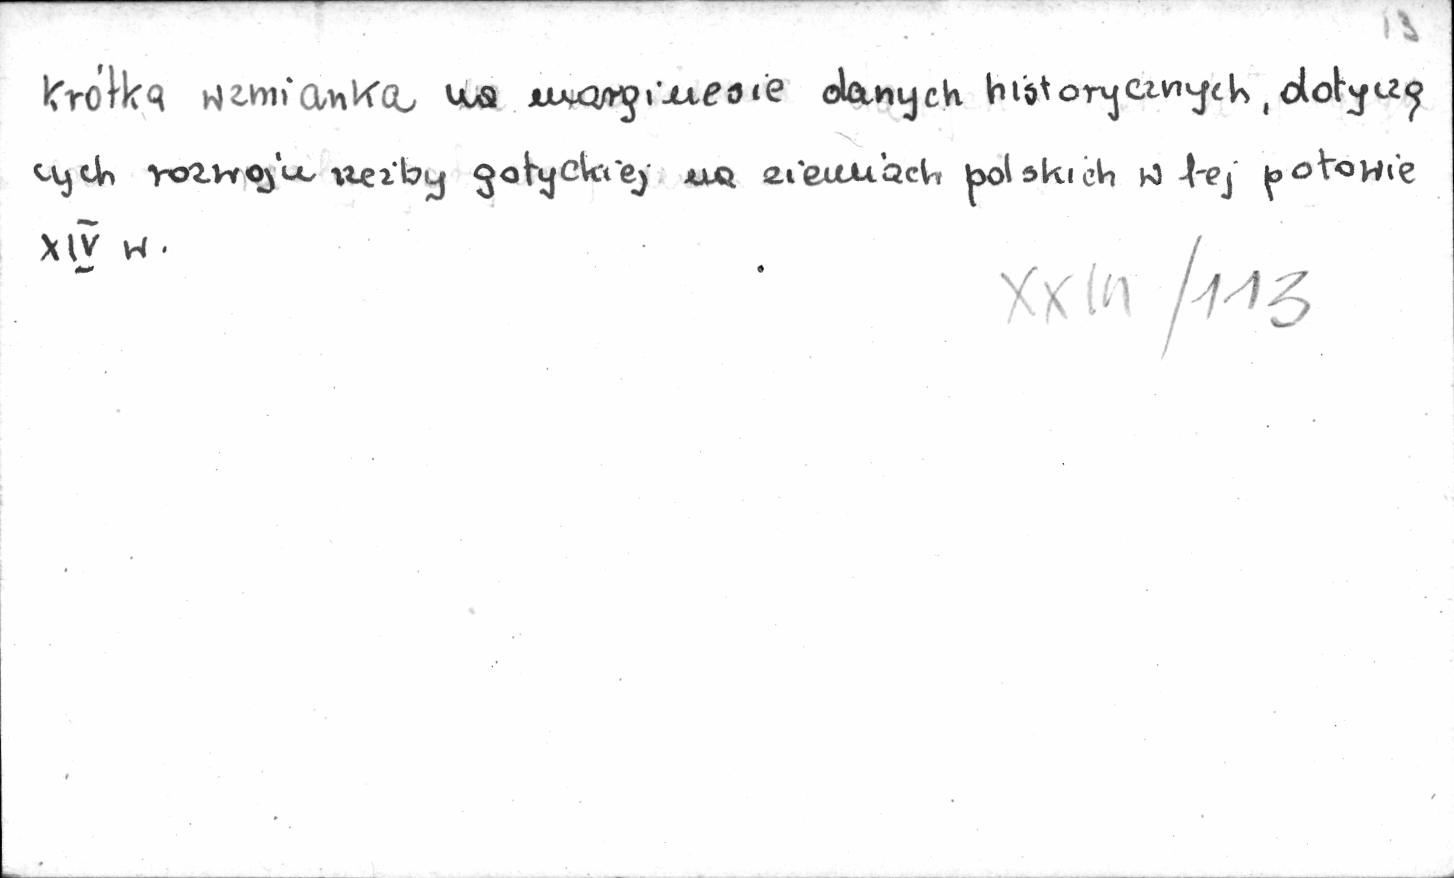 13
Krótka wzmianka na marginesie danych historycznych, dotyczą
cych rozwoju rzeźby gotyckiej na ziemiach polskich w 1-ej połowie
XIV w.
/113